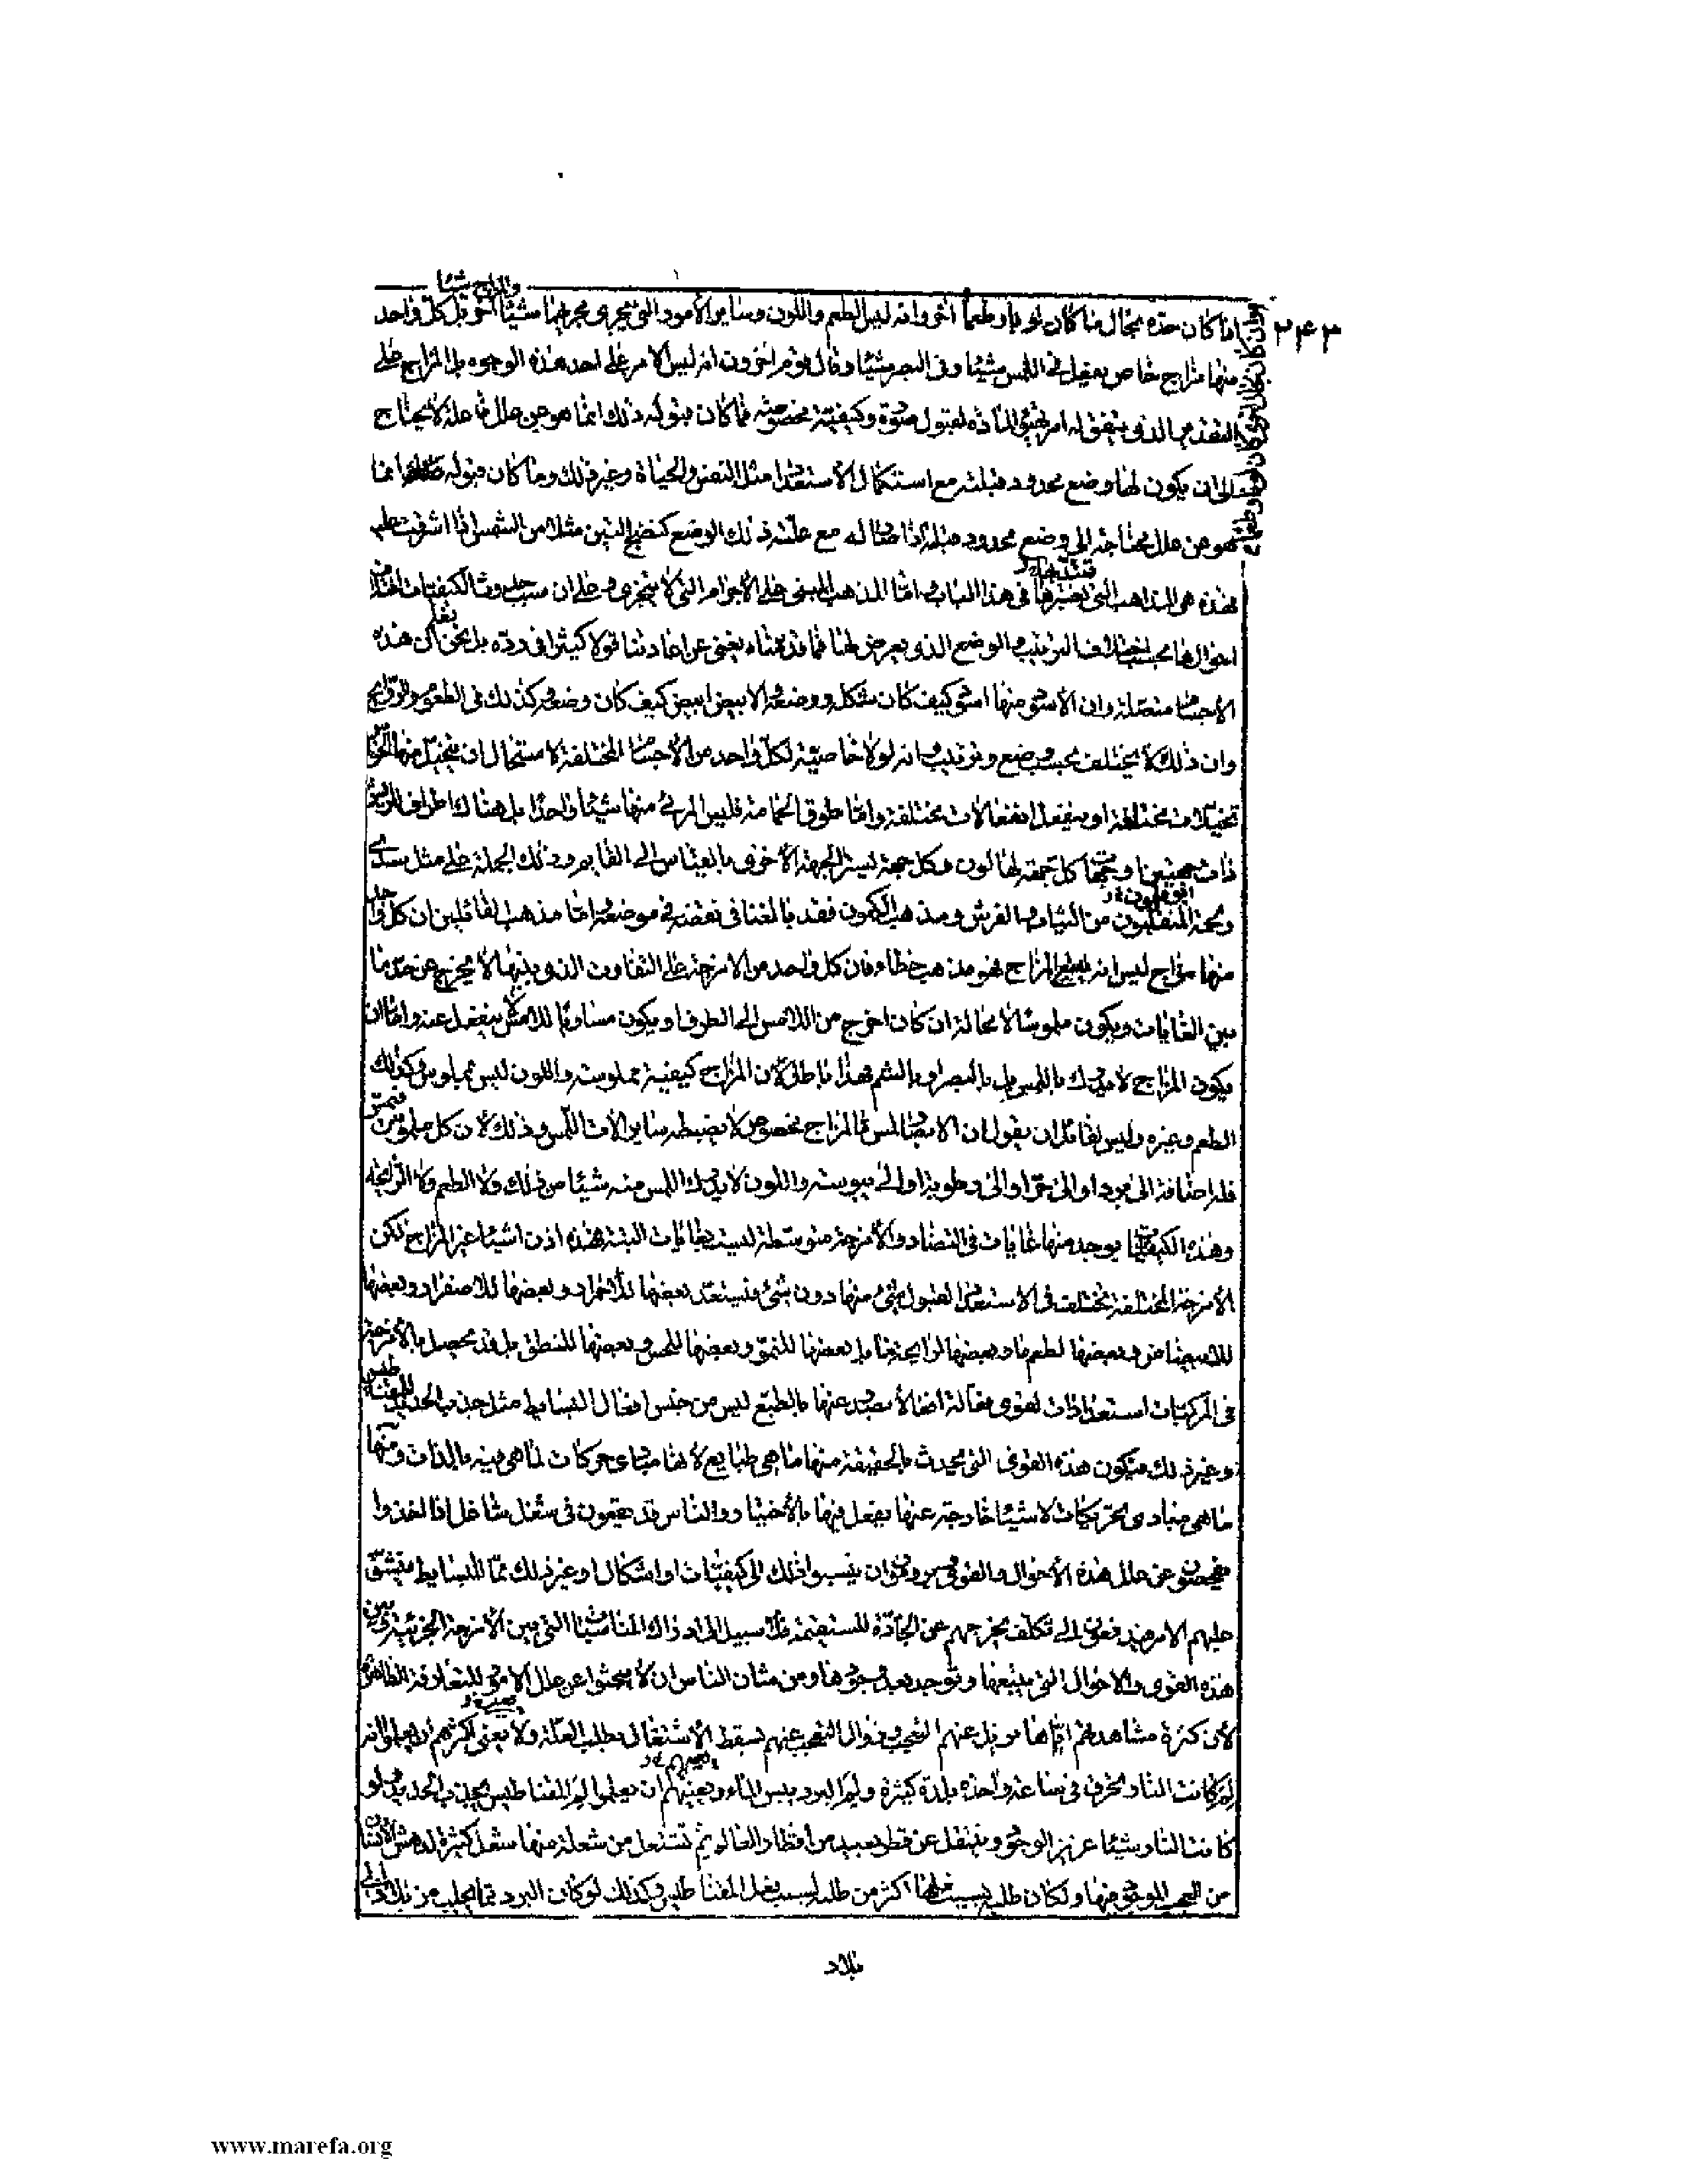 والمزاج شيئا
اذا كان حده بحال ما كان لونا وطعما وانه ليس الطعم واللون وساير الأمور التى تجرى مجريها شيئا آخر بل كل واحد
۲۴۳
منها مزاج خاص يفعل فى اللمس شيئا وفى البصر شيئا وقال قوم اخرون انه ليس الامر على احد هذه الوجوه بل المزاج على
الذى يتفق له امر يهيئ المادة لقبول صورة وكيفية مخصوصة فما كان قبوله ذلك انما هو عن علل فاعلة لا يحتاج
الى ان يكون لها وضع محدود قبلته مع استكمال الاستعداد مثل النفس والحياة وغير ذلك وما كان قبوله انما
هو عن علل محتاجة الى وضع محدود قبله اذا صار له مع علته ذلك الوضع كنضج التين مثلا من الشمس اذا اشرقت عليه
فهذه هى المذاهب التى فى هذا الباب اما المذهب المبنى على الأجرام التى لا تتجزى وعلى ان سبيل حدوث الكيفيات
احوالها بحسب اختلاف الترتيب والوضع الذى يعرض لها فما قدمناه يغنى عن اعادتنا قولا كثيرا فى رده بل نحن نعلم ان هذه
الأجسام متصلة وان الأسود منها اسود كيف كان شكله ووضعه والابيض ابيض كيف كان وضعه وكذلك فى الطعوم والروايح
وان ذلك لا يختلف بحسب وضع وترتيب وانه لولا خاصية لكل واحد من الأجسام المختلفة لاستحال ان يتخيل منها
تخيلات مختلفة او ينفعل انفعالات مختلفة واما طوق الحمامة فليس المرئى منها شيئا واحدا بل هناك اطراف للريش
ذات جهتين كل جهة لها لون وكل جهة تستر الجهة الأخرى بالقياس الى القايم وذلك بالجملة على مثل سدى
ولحمة من الثياب والفرش ومذهب الكمون فقد بالغنا فى نقضه فى موضعه واما مذهب القائلين ان كل واحد
منها مزاج ليس انه يتبع المزاج فهو مذهب خطاء فان كل واحد من الأمزجة على التفاوت الذى بينها لا يخرج عن حد ما
بين الغايات ويكون ملموسا لا محالة ان كان اخرج من اللامس الى الطرف او يكون مساويا للامس لا ينفعل عنه واما ان
يكون المزاج لا يدرك باللمس بل بالبصر او بالشم فهذا باطل لان المزاج كيفية ملموسة واللون ليس بملموس وكذلك
الطعم وغيره وليس لقائل ان يقول ان الابصار للمزاج مخصوص لا يضبطه ساير الات اللمس وذلك لان كل ملموس
فله اضافة الى برد او الى حر او الى رطوبة او الى يبوسة واللون لا يدرك اللمس منه شيئا من ذلك ولا الطعم ولا الرائحة
وهذه الكيفيات يوجد منها غايات فى التضاد والأمزجة متوسطة ليست بغايات البتة فهذه اذن اشياء غير المزاج لكن
الأمزجة المختلفة تختلف فى الاستعداد لقبول شئ منها دون شئ فيستعد بعضها للاحمرار وبعضها للاصفرار وبعضها
للابيضاض وبعضها لطعم ما وبعضها لرايحة ما بل بعضها للنمو وبعضها للحس وبعضها للنطق بل قد يحصل بالأمزجة
فى المركبات استعدادات لقوى فعالة افعالا يصدر عنها بالطبع ليس من جنس افعال البسايط مثل جذب الحديد للمغناطيس
وغير ذلك فيكون هذه القوى التى تحدث بالحقيقة منها ما هى طبايع لانها مبادى حركات لما هى فيه بالذات ومنها
ما هى مبادى تحريكات لاشياء خارجة عنها يفعل فيها بالأختيار والناس قد يقعون فى شغل شاغل اذا اخذوا
يفحصون عن علل هذه الأحوال والقوى ويرومون ان ينسبوا ذلك الى كيفيات او اشكال او غير ذلك مما للبسايط فيشق
عليهم الامر فيدفعون الى تكلف يخرجهم عن الجادة المستقيمة فلا سبيل الى ادراك المناسبات التى بين الأمزجة الجزئية وبين
هذه القوى والاحوال التى يتبعها ويوجد بعد وجودها ومن شان الناس ان لا يبحثوا عن علل الامور المتعارفة الظاهرة
لان كثرة مشاهدتهم اياها يزيل عنهم التعجب وزوال التعجب عنهم يسقط الاشتغال بطلب العلة ولا يعنى اكثرهم ان يعلم انه
لم كانت النار تحرق فى ساعة واحدة بلدة كبيرة ولم البرد يبس الماء ويعنيهم ان يعلموا لم المغناطيس يجذب الحديد ولو
كانت النار شيئا عزيز الوجود وينقل عن قطر بعيد من اقطار العالم ثم تشتعل من شعلة منها شعل كثيرة لدهش الانسان
من العجب الموجود منها ولكان طلبه بسبب فعلها اكثر من طلبه لسبب فعل المغناطيس وكذلك لو كان البرد مما يجلب من بلاد الى
بلاد
www.marefa.org